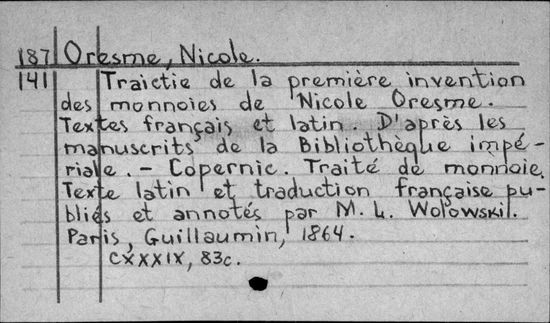 187 Oresme, Nicole.
141 Traictie de la première invention
des monnoies de Nicole Oresme.
Textes français et latin. D'après les
manuscrits de la Bibliothèque impé-
riale. - Copernic. Traité de monnoie.
Texte latin et traduction française pu-
bliés et annotés par M. L. Wolowski.
Paris, Guillaumin, 1864.
CXXXIX, 83c.